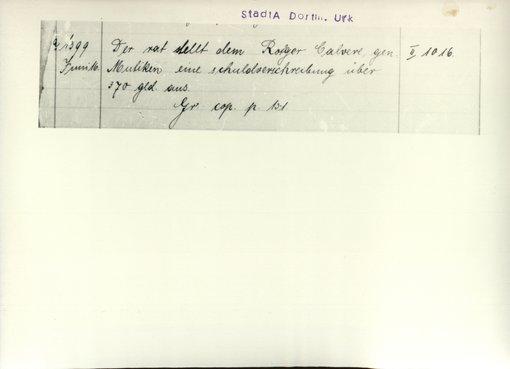 StadtA Dortm. Urk
1399 Der rat stellt dem Rotger Calvere, gen. II 1016.
Juni 16. Mutiken eine schuldverschreibung über
370 gld aus.
Gr. cop. p. 131